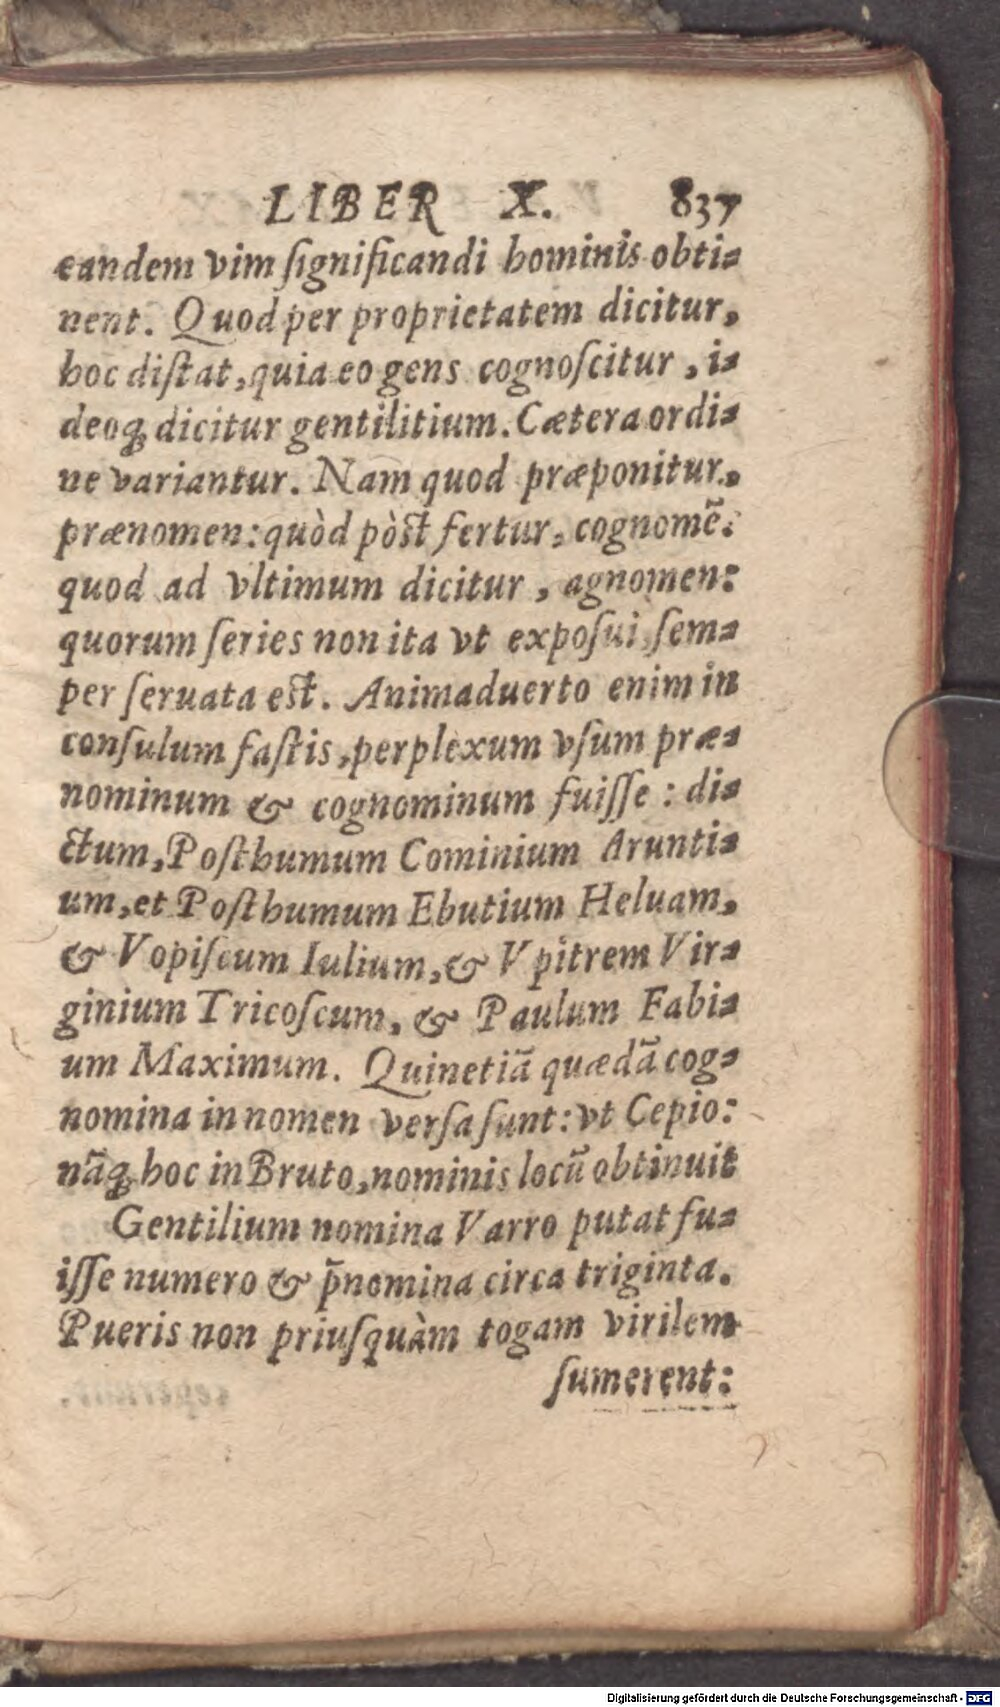 LIBER X. 837
eandem vim ſignificandi hominis obti-
nent. Quod per proprietatem dicitur,
hoc diſtat, quia eo gens cognoſcitur, i-
deoq́; dicitur gentilitium. Cætera ordi-
ne variantur. Nam quod præponitur,
prænomen: quòd pòſt fertur, cognomē:
quod ad vltimum dicitur, agnomen:
quorum ſeries non ita vt expoſui, ſem-
per ſeruata eſt. Animaduerto enim in
conſulum faſtis, perplexum vſum præ-
nominum & cognominum fuiſſe: di-
ctum, Poſthumum Cominium Arunti-
um, et Poſthumum Ebutium Heluam,
& Vopiſcum Iulium, & Vpitrem Vir-
ginium Tricoſcum, & Paulum Fabi-
um Maximum. Quinetiã quædã cog-
nomina in nomen verſa ſunt: vt Cepio:
nãq́; hoc in Bruto, nominis locũ obtinuit
Gentilium nomina Varro putat fu-
iſſe numero & p̄nomina circa triginta.
Pueris non priuſquàm togam virilem
ſumerent:
Digitalisierung gefördert durch die Deutsche Forschungsgemeinschaft - DFG